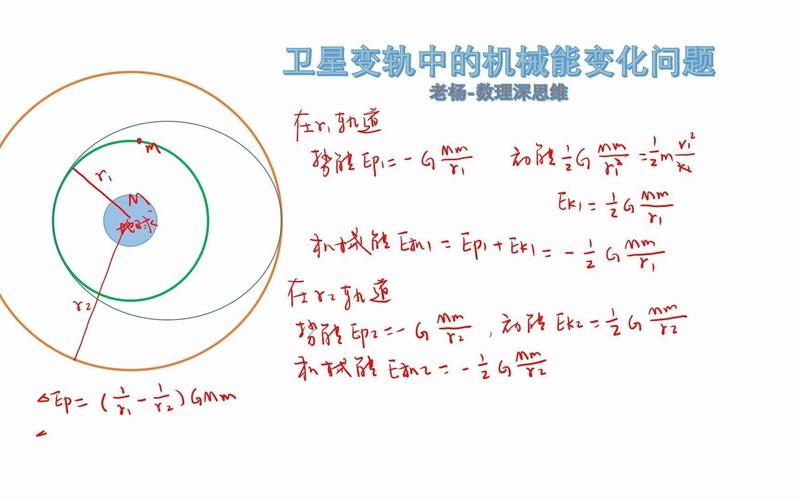 卫星变轨中的机械能变化问题
老杨-数理深思维
在r₁轨道
势能Ep₁=-G Mm/r₁ 动能 1/2 G Mm/r₁² = 1/2 m v₁²/r₁
Ek₁= 1/2 G Mm/r₁
机械能E机₁=Ep₁+Ek₁=- 1/2 G Mm/r₁
在r₂轨道
势能Ep₂=-G Mm/r₂, 动能Ek₂= 1/2 G Mm/r₂
机械能E机₂=- 1/2 G Mm/r₂
m
r₁
M
地球
r₂
△Ep=(1/r₁ - 1/r₂)GMm